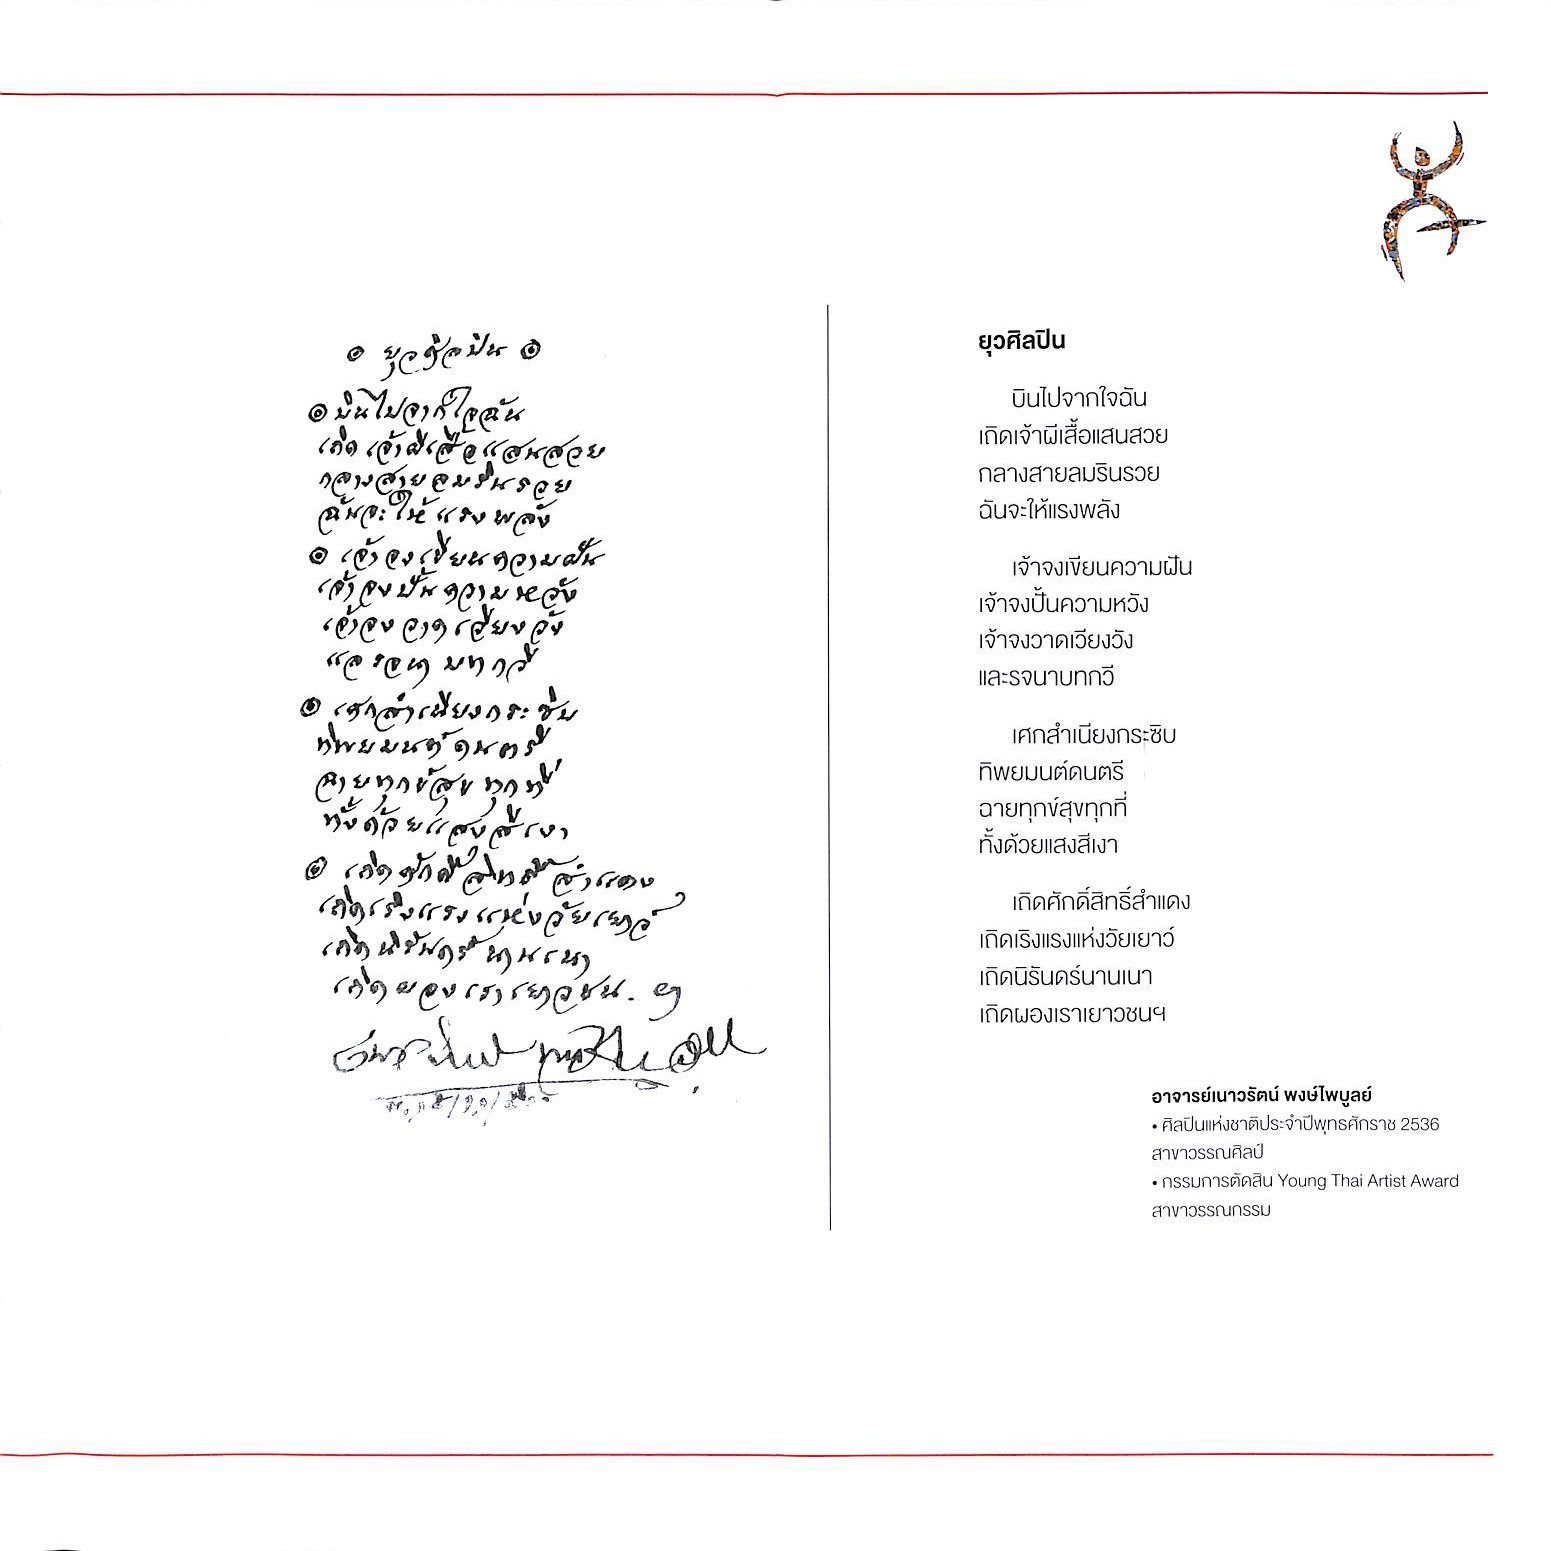 ๏ ยุวศิลปิน ๏
๏ บินไปจากใจฉัน
เกิดเจ้าผีเสื้อแสนสวย
กลางสายลมรินรวย
ฉันจะให้แรงพลัง
๏ เจ้าจงเขียนความฝัน
เจ้าจงปั้นความหวัง
เจ้าจงวาดเวียงวัง
แลรจนาบทกวี
๏ เศกสำเนียงกระซิบ
ทิพยมนต์ดนตรี
ฉายทุกข์สุขทุกที่
ทั้งด้วยแสงสีเงา
๏ เถิดศักดิ์สิทธิ์สำแดง
เถิดเริงแรงแห่งวัยเยาว์
เถิดนิรันดร์นานเนา
เถิดผองเราเยาวชน. ๛
ยุวศิลปิน
บินไปจากใจฉัน
เถิดเจ้าผีเสื้อแสนสวย
กลางสายลมรินรวย
ฉันจะให้แรงพลัง
เจ้าจงเขียนความฝัน
เจ้าจงปั้นความหวัง
เจ้าจงวาดเวียงวัง
และรจนาบทกวี
เศกสำเนียงกระซิบ
ทิพยมนต์ดนตรี
ฉายทุกข์สุขทุกที่
ทั้งด้วยแสงสีเงา
เถิดศักดิ์สิทธิ์สำแดง
เถิดเริงแรงแห่งวัยเยาว์
เถิดนิรันดร์นานเนา
เถิดผองเราเยาวชนฯ
อาจารย์เนาวรัตน์ พงษ์ไพบูลย์
• ศิลปินแห่งชาติประจำปีพุทธศักราช 2536
สาขาวรรณศิลป์
• กรรมการตัดสิน Young Thai Artist Award
สาขาวรรณกรรม